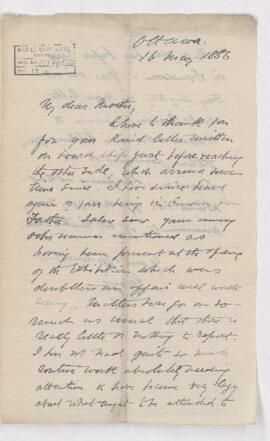 Ottawa.
16 May 1886
My dear Brother,
I have to thank you
for your kind letter written
on board ship just before reaching
the other side, which arrived some
time since. I have since heard
again of your being in London from
Father. I also saw your name
mentioned as
having been present at the opening
of the Exhibition which was
doubtless an affair well worth
seeing. Matters here go on so
much as usual that there is
really little or nothing to report.
I have not had quite so much
routine work absolutely needing
attention & have become very lazy
about what ought to be attended to